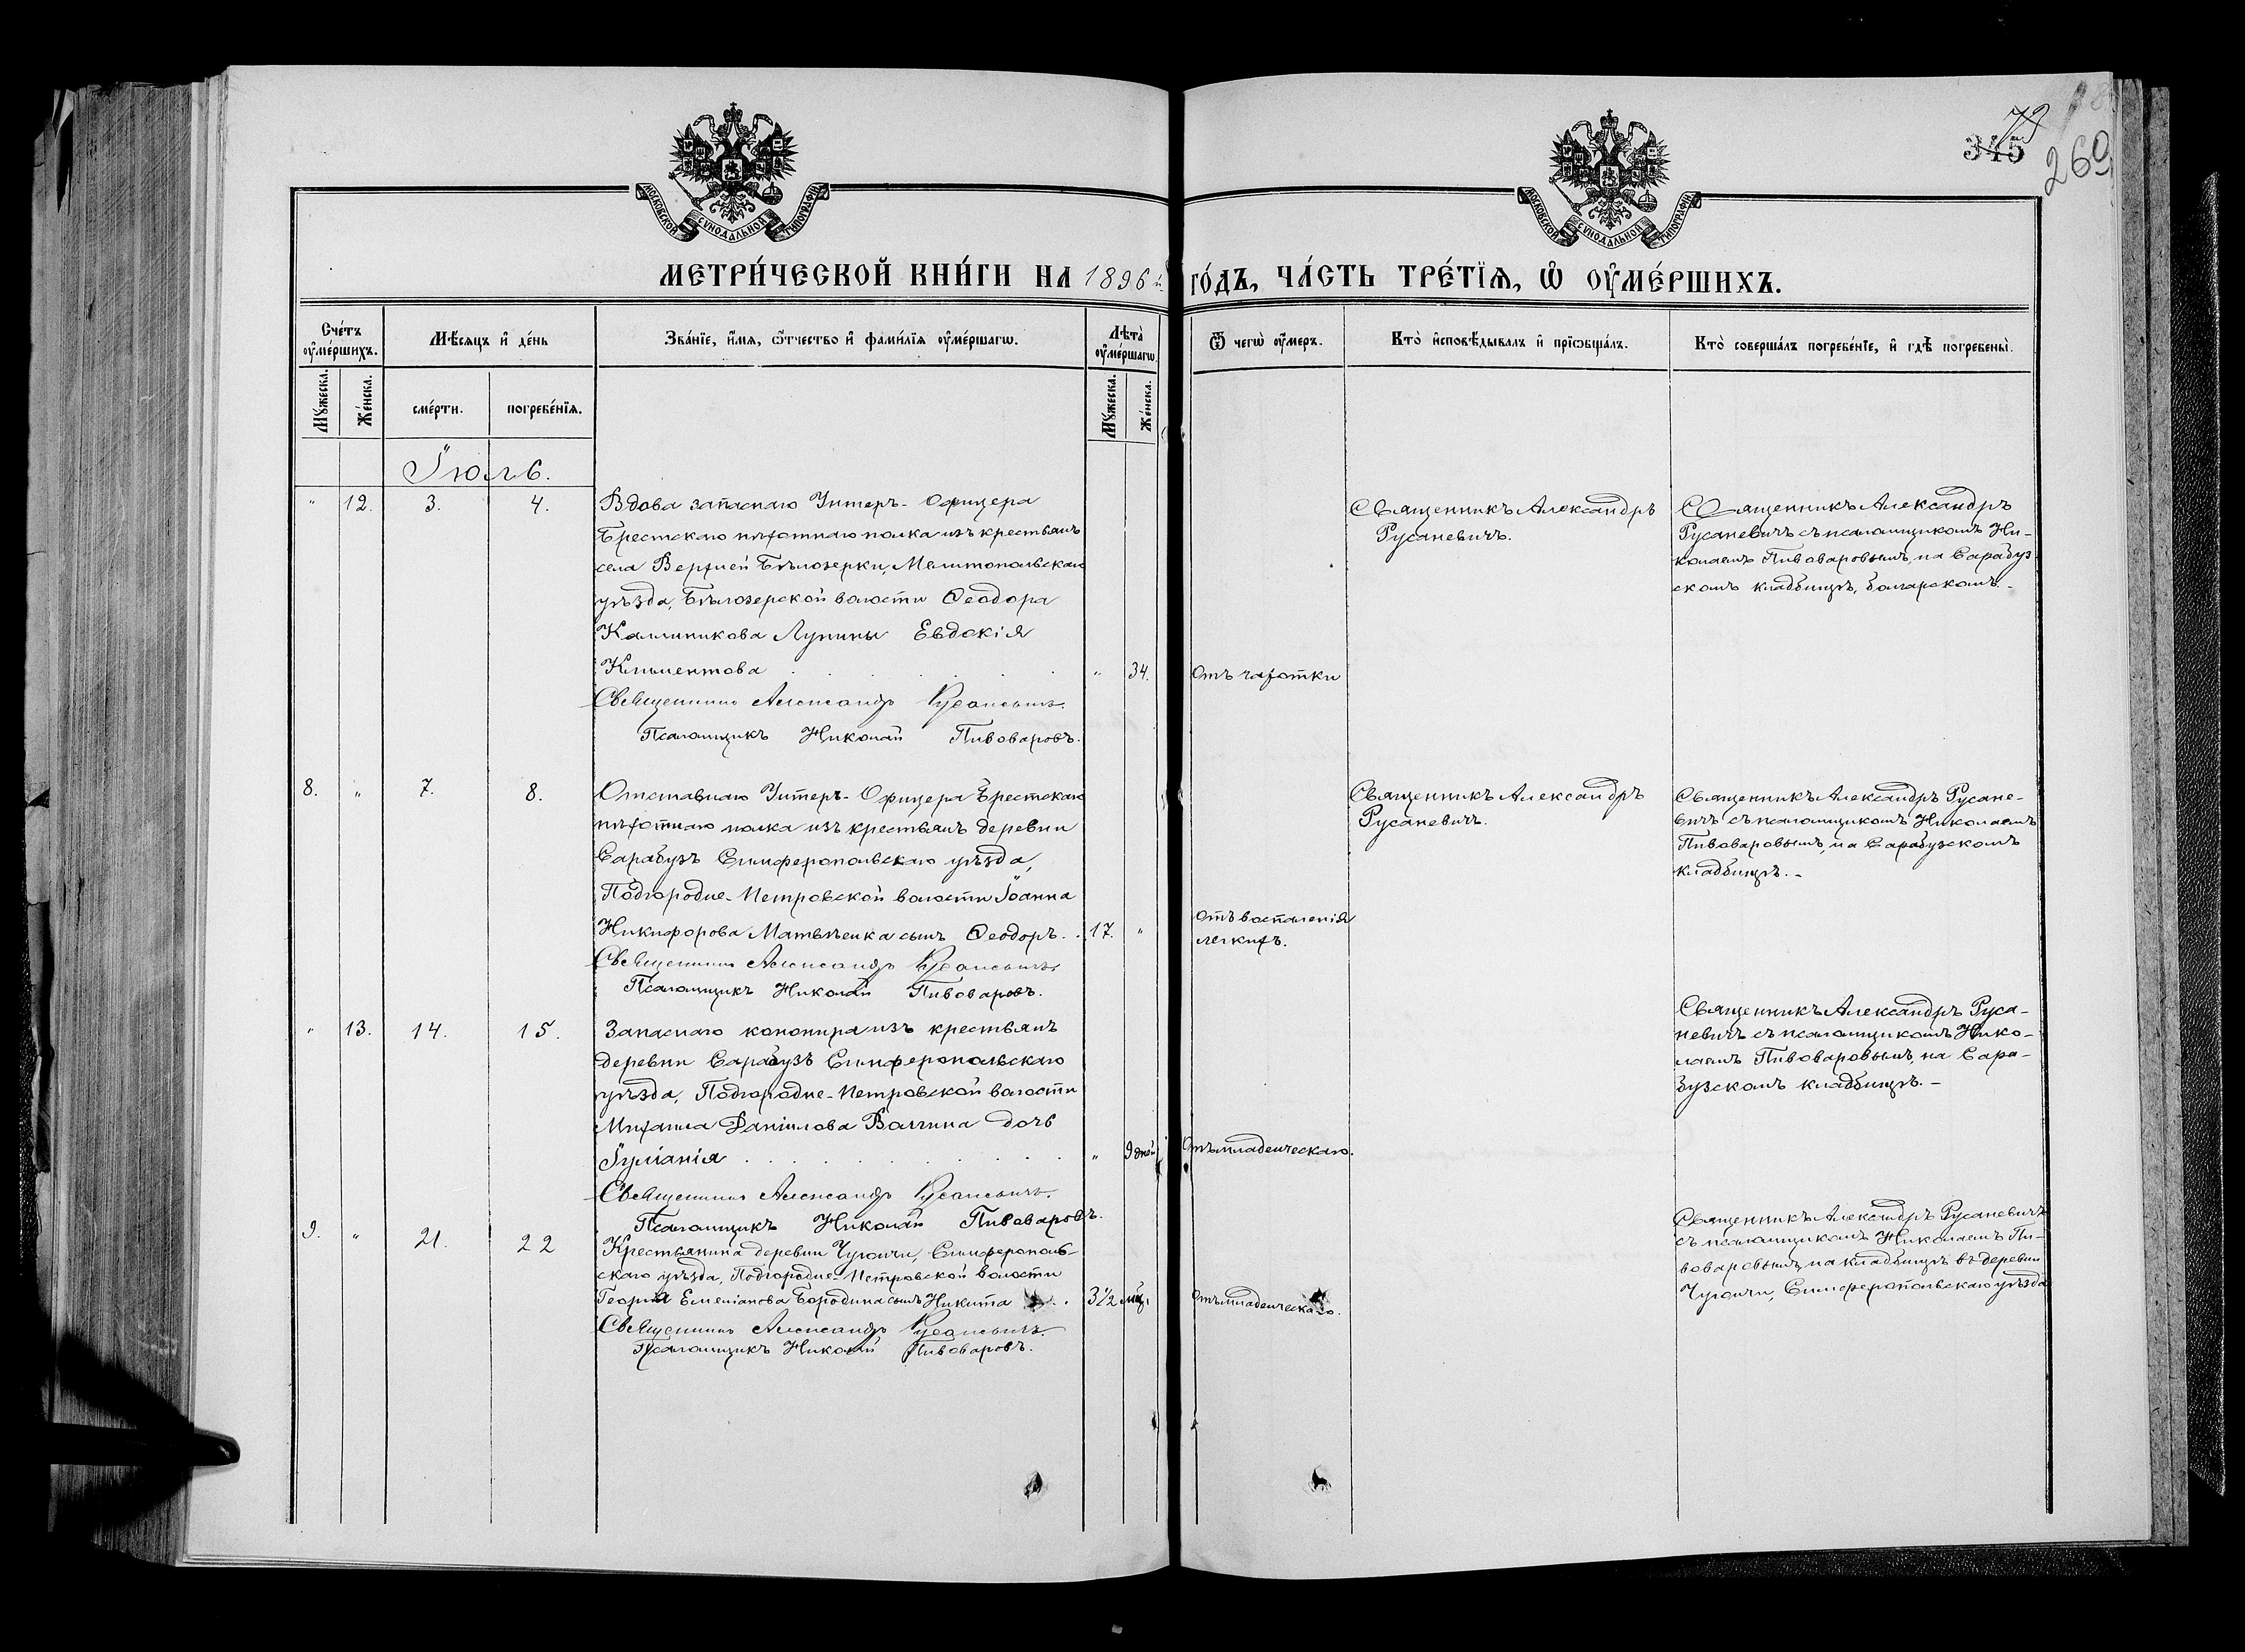 345
72
260
МОСКОВСКОЙ СУНОДАЛЬНОЙ ТИПОГРАФІИ
МОСКОВСКОЙ СУНОДАЛЬНОЙ ТИПОГРАФІИ
МЕТРИ́ЧЕСКОЙ КНИ́ГИ НА 1896 й
ГО́ДЪ, ЧА́СТЬ ТРЕ́ТЇѦ, Ѡ ОУМЕ́РШИХЪ.
Сче́тъ оумершихъ.
Мѣсяцъ и де́нь
Зва́нїе, и́мя, ѻтчество и фами́лїя оуме́ршагѡ.
Лѣта̀ оуме́ршагѡ
Ѿ чегѡ̀ оу́меръ.
Кто̀ исповѣ́дывалъ и прїѡбща́лъ.
Кто̀ соверша́лъ погребе́нїе, и гдѣ̀ погребены̀.
Мꙋжеска.
Же́нска.
сме́рти.
погребе́нїя.
Мꙋжеска.
Же́нска.
Іюль.
" 12. 3. 4.
Вдова запаснаго Унтеръ-Офицера
Брестскаго пѣхотнаго полка изъ крестьянъ
села Верхней Бѣлозерки, Мелитопольскаго
уѣзда, Бѣлозерской волости Ѳеодора
Каллиникова Лупины Евдокія
Климентова " 34.
Священникъ Александръ Русаневичъ.
Псаломщикъ Николай Пивоваровъ.
Отъ чахотки
Священникъ Александръ
Русаневичъ.
Священникъ Александръ
Русаневичъ съ псаломщикомъ Ни-
колаемъ Пивоваровымъ, на Сарабуз-
скомъ кладбищѣ, болгарскомъ.-
8. " 7. 8.
Отставнаго Унтеръ-Офицера Брестскаго
пѣхотнаго полка изъ крестьянъ деревни
Сарабузъ Симферопольскаго уѣзда,
Подгородне-Петровской волости Іоанна
Никифорова Матвѣенка сынъ Ѳеодоръ. . 17. "
Священникъ Александръ Русаневичъ.
Псаломщикъ Николай Пивоваровъ.
отъ воспаленія
легкихъ.
Священникъ Александръ
Русаневичъ.
Священникъ Александръ Русане-
вичъ съ псаломщикомъ Николаемъ
Пивоваровымъ, на Сарабузскомъ
кладбищѣ.-
" 13. 14. 15.
Запаснаго канонира изъ крестьянъ
деревни Сарабузъ Симферопольскаго
уѣзда, Подгородне-Петровской волости
Михаила Даніилова Валгина дочь
Іуліанія " 9 дней
Священникъ Александръ Русаневичъ.
Псаломщикъ Николай Пивоваровъ.
Отъ младенческаго.
Священникъ Александръ Руса-
невичъ съ псаломщикомъ Нико-
лаемъ Пивоваровымъ, на Сара-
бузскомъ кладбищѣ.-
9. " 21. 22
Крестьянина деревни Чуюнчи, Симферополь-
скаго уѣзда, Подгородне-Петровской волости
Георгія Емеліанова Бородина сынъ Никита . 3½ мѣц.
Священникъ Александръ Русаневичъ.
Псаломщикъ Николай Пивоваровъ.
отъ младенческаго.
Священникъ Александръ Русаневичъ
съ псаломщикомъ Николаемъ Пи-
воваровымъ, на кладбищѣ въ деревни
Чуюнчи, Симферопольскаго уѣзда